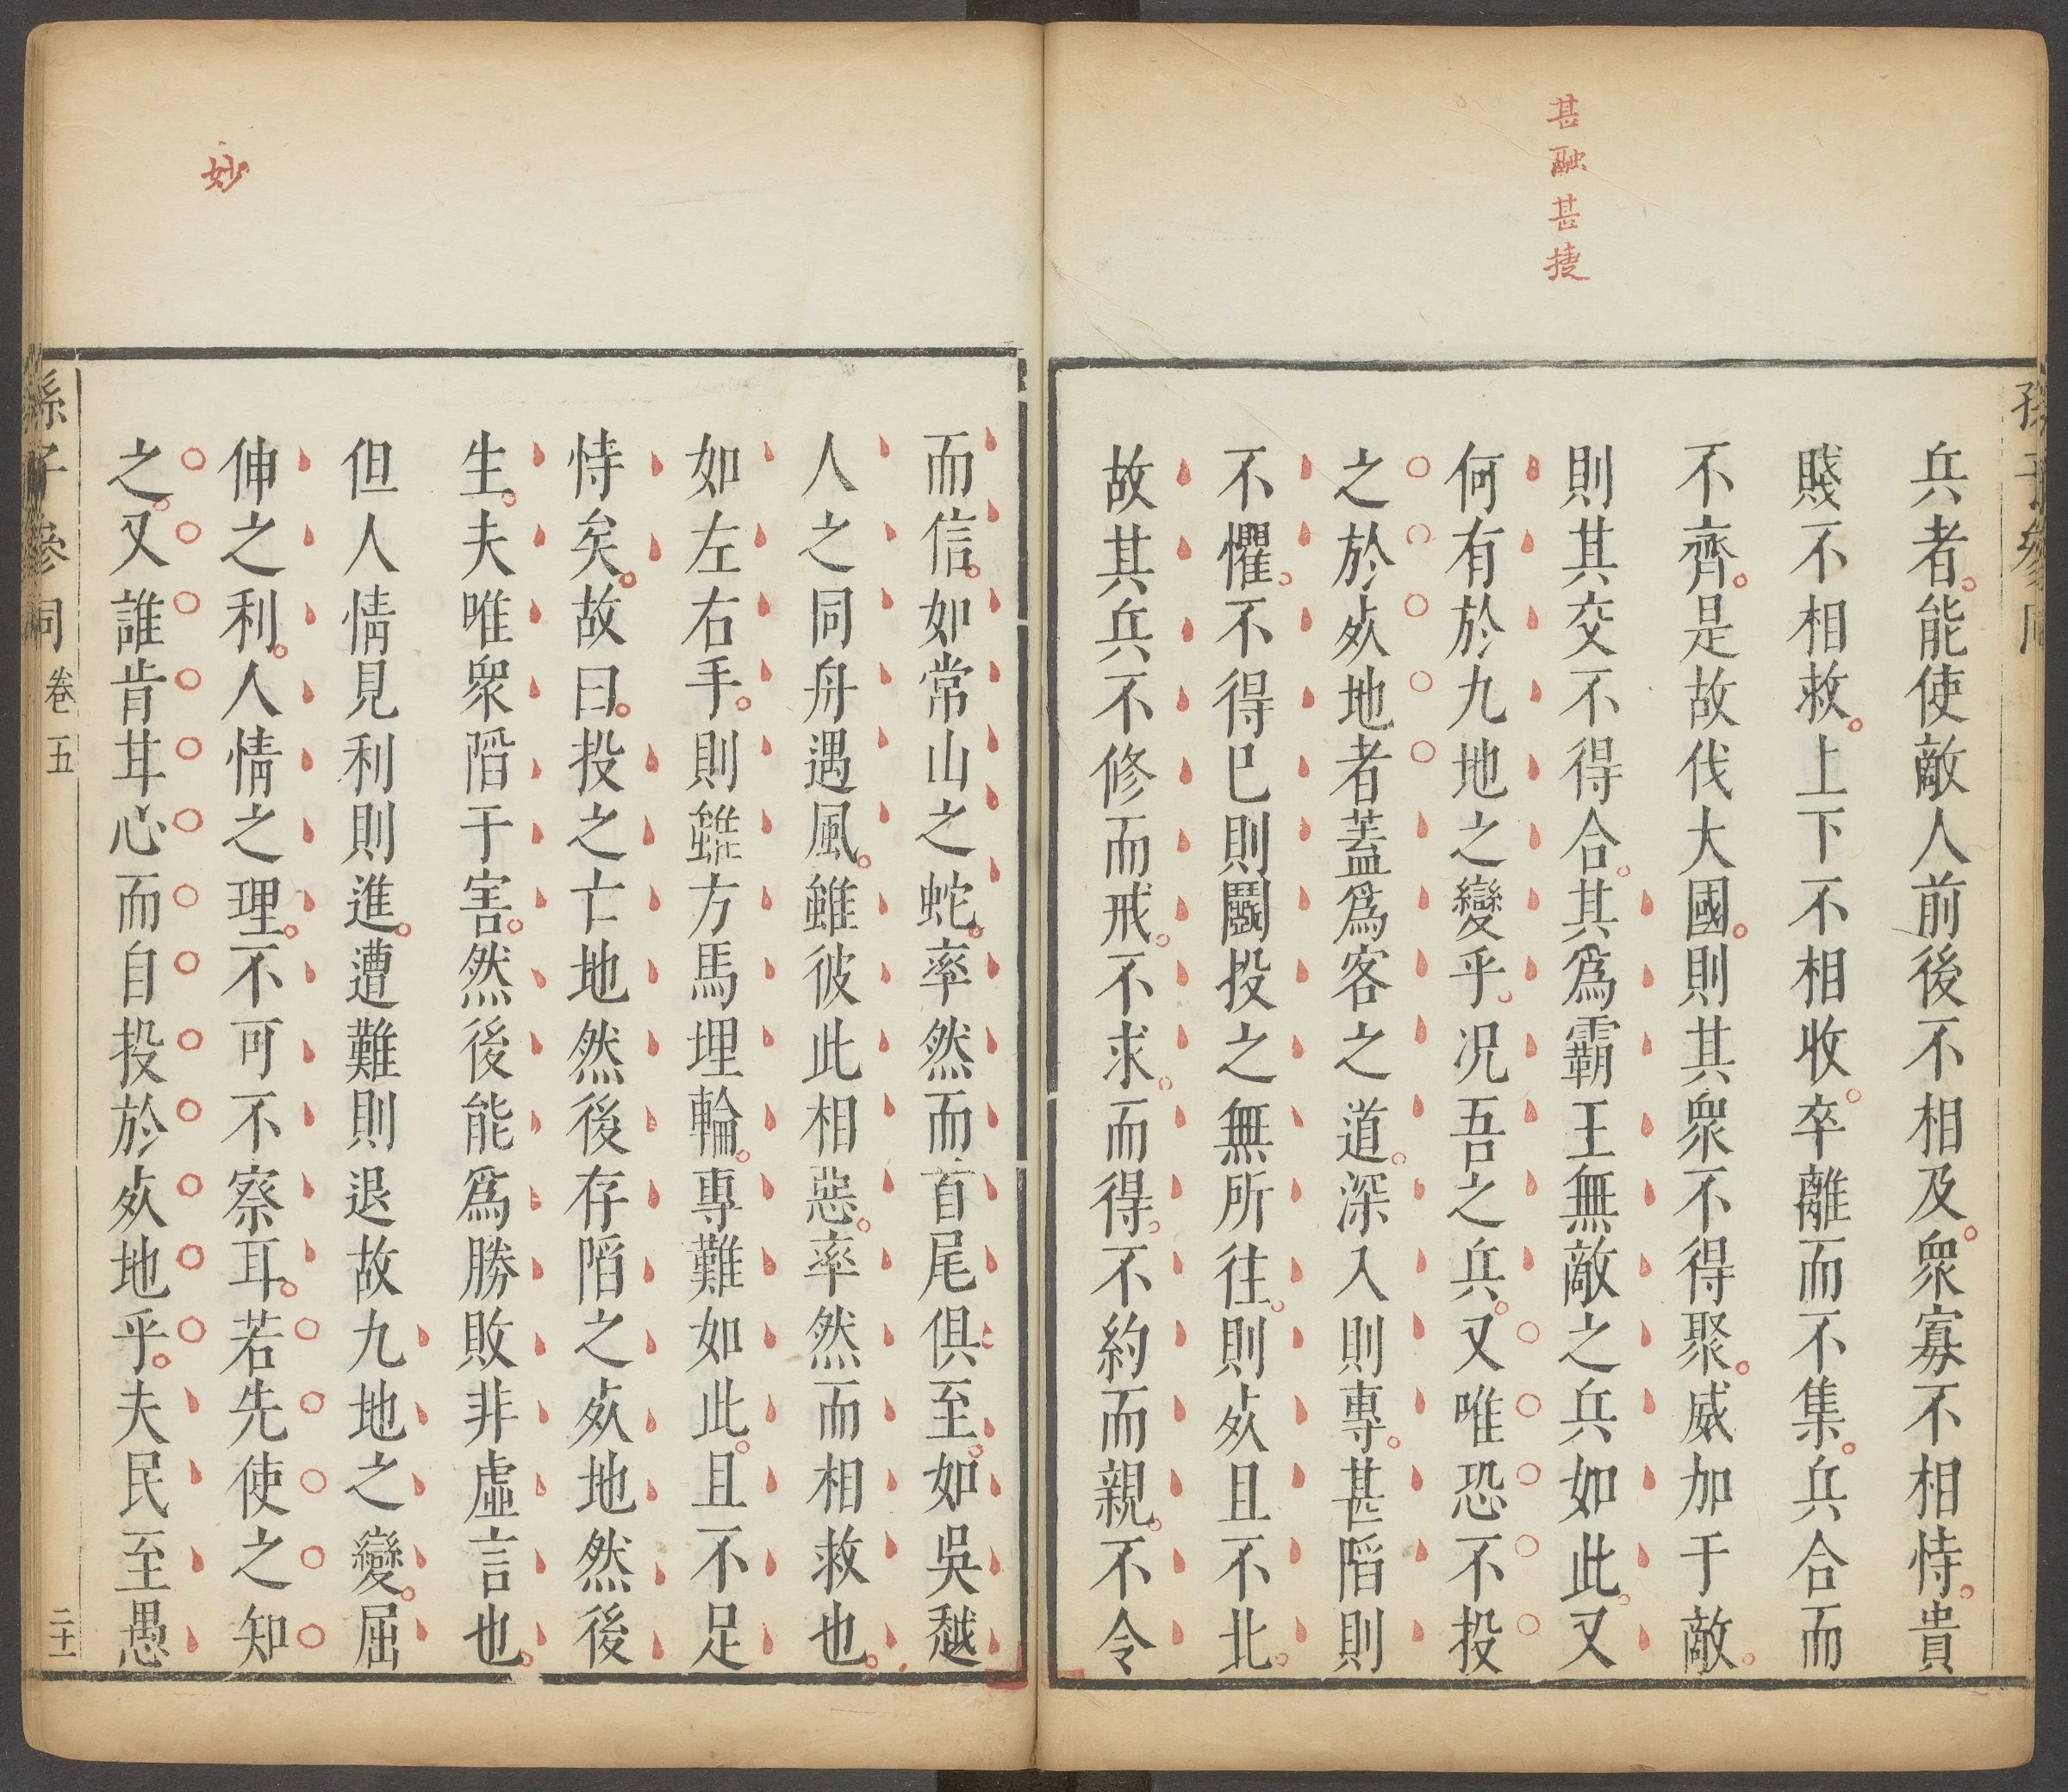 甚融甚捷
兵者。能使敵人前後不相及。衆寡不相恃。貴
賤不相救。上下不相收。卒離而不集。兵合而
不齊。是故伐大國。則其衆不得聚。威加于敵。
則其交不得合。其爲霸王無敵之兵如此。又
何有於九地之變乎。况吾之兵。又唯恐不投
之於㱙地者葢爲客之道。深入則專。甚䧟則
不懼。不得巳則鬬投之無所往。則㱙且不北。
故其兵不修而戒。不求。而得。不約而親。不令
妙
而信。如常山之蛇。率然而首尾俱至。如吳越
人之同舟遇風。雖彼此相惡。率然而相救也。
如左右手。則雖方馬埋輪。專難如此。且不足
恃矣。故曰。投之亡地然後存䧟之㱙地然後
生。夫唯衆䧟于害。然後能爲勝敗非虛言也。
但人情見利則進。遭難則退故九地之變。屈
伸之利。人情之理。不可不察耳。若先使之知
之。又誰肯甘心而自投於㱙地乎。夫民至愚
孫子參同 卷五
二十一